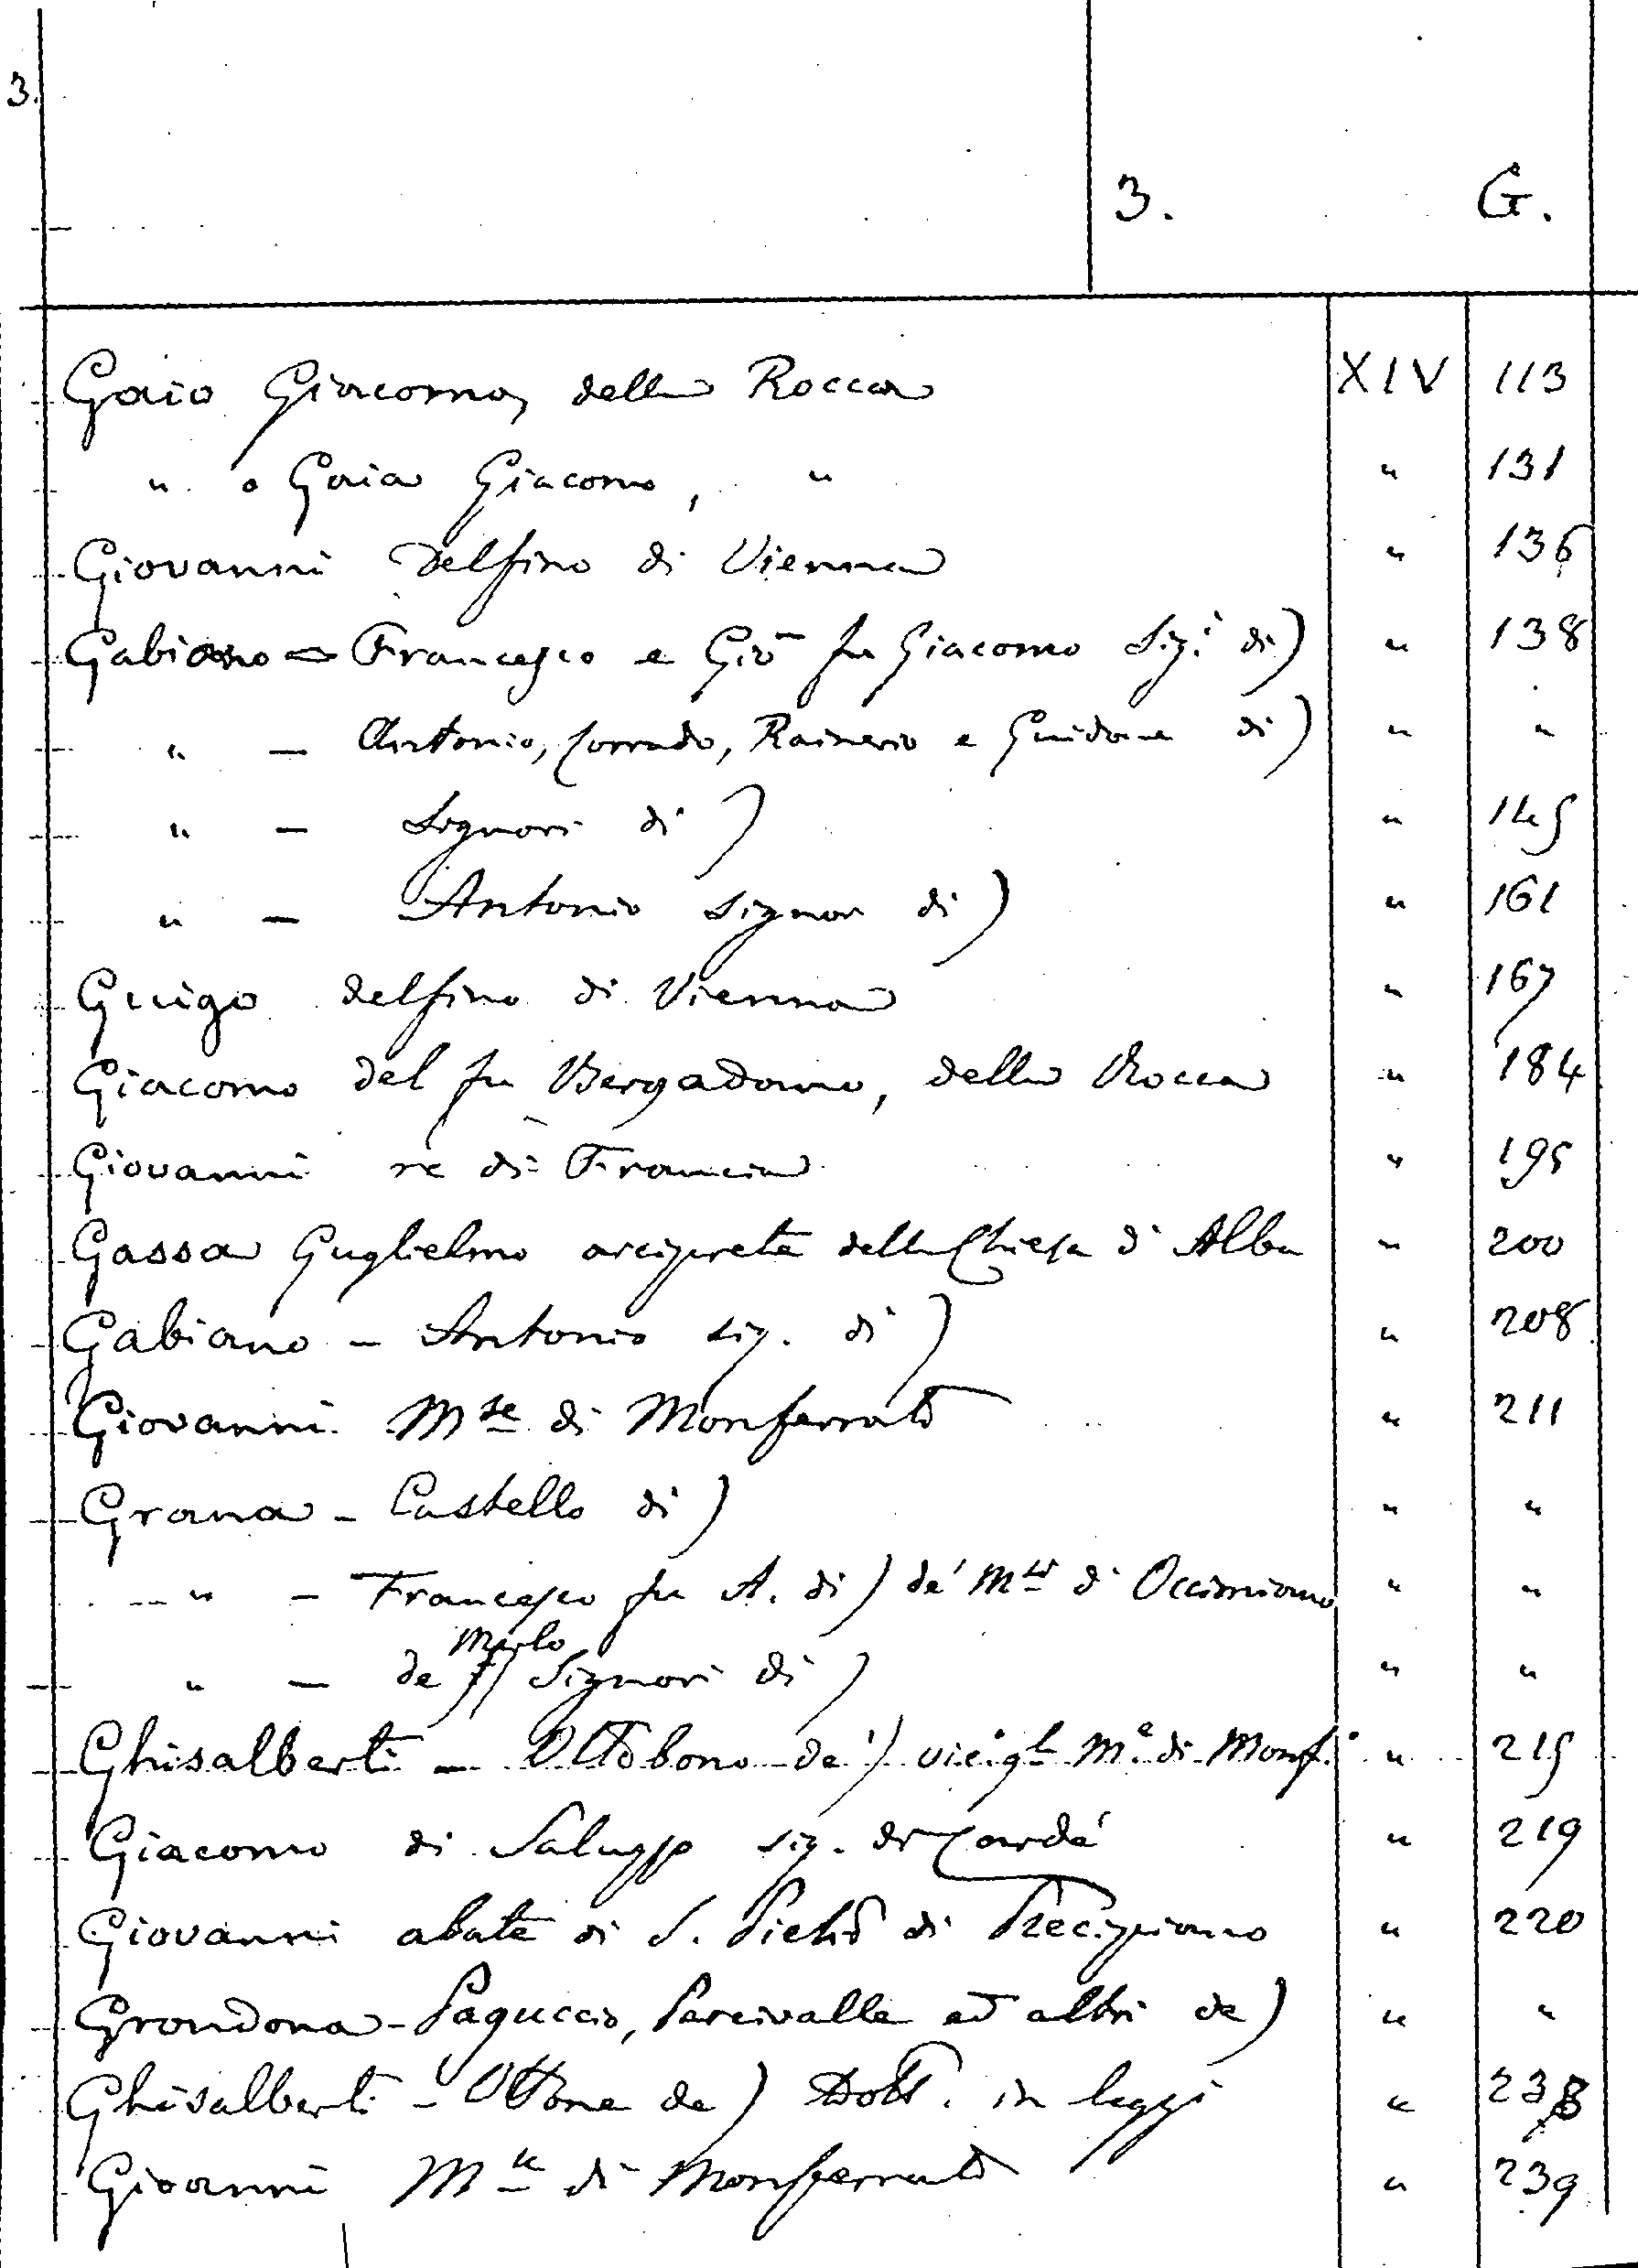 3.
3. G.
Gaio Giacomo, della Rocca XIV 113
" o Gaia Giacomo, " " 131
Giovanni Delfino di Vienna " 136
Gabiano - Francesco e Gio fu Giacomo Sig.i di) " 138
" - Antonio, Corrado, Rainerio e Guidone di) " "
" - Signori di) " 145
" - Antonio signor di) " 161
Guigo delfino di Vienna " 167
Giacomo del fu Bergadano, della Rocca " 184
Giovanni re di Francia " 195
Gassa Guglielmo arciprete della Chiesa d' Alba " 200
Gabiano - Antonio sig. di) " 208
Giovanni Mse di Monferrato " 211
Grana - Castello di) " "
" - Francesco fu A. di) de' Msi d' Occimiano " "
" - de Merlo Signori di) " "
Ghisalberti - Ottobono de') vic.gl M.e di Monf.o " 215
Giacomo di Saluzzo sig. di Cardé " 219
Giovanni abate di S. Pietro di Precipiano " 220
Grondona - Paguccio, Percivalle ed altri de) " "
Ghisalberti - Ottone de) Dott. in leggi " 238
Giovanni Mse di Monferrato " 239